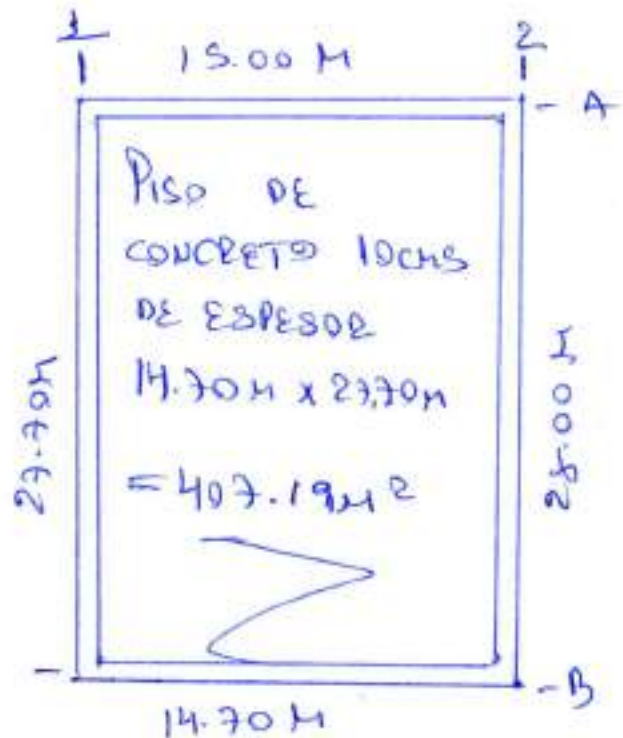 1
2
15.00 M
A
PISO DE
CONCRETO 10CMS
DE ESPESOR
14.70M x 27,70M
= 407.19M2
27.70M
28.00 M
B
14.70 M